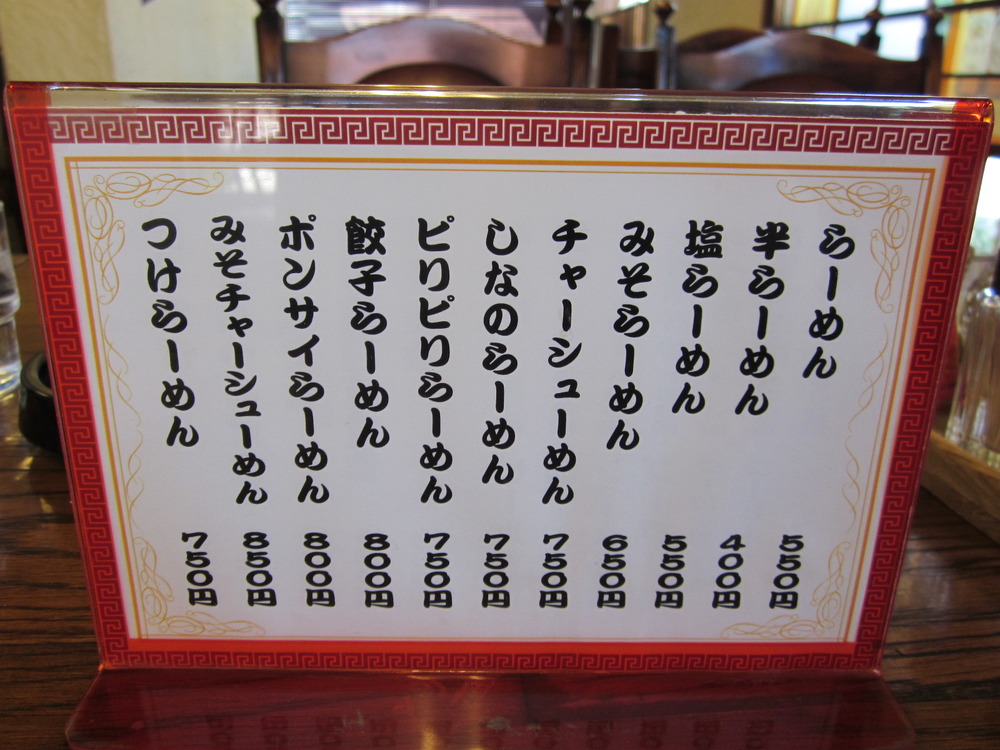 らーめん 550円
半らーめん 400円
塩らーめん 550円
みそらーめん 650円
チャーシューめん 750円
しなのらーめん 750円
ピリピリらーめん 750円
餃子らーめん 800円
ポンサイらーめん 800円
みそチャーシューめん 850円
つけらーめん 750円